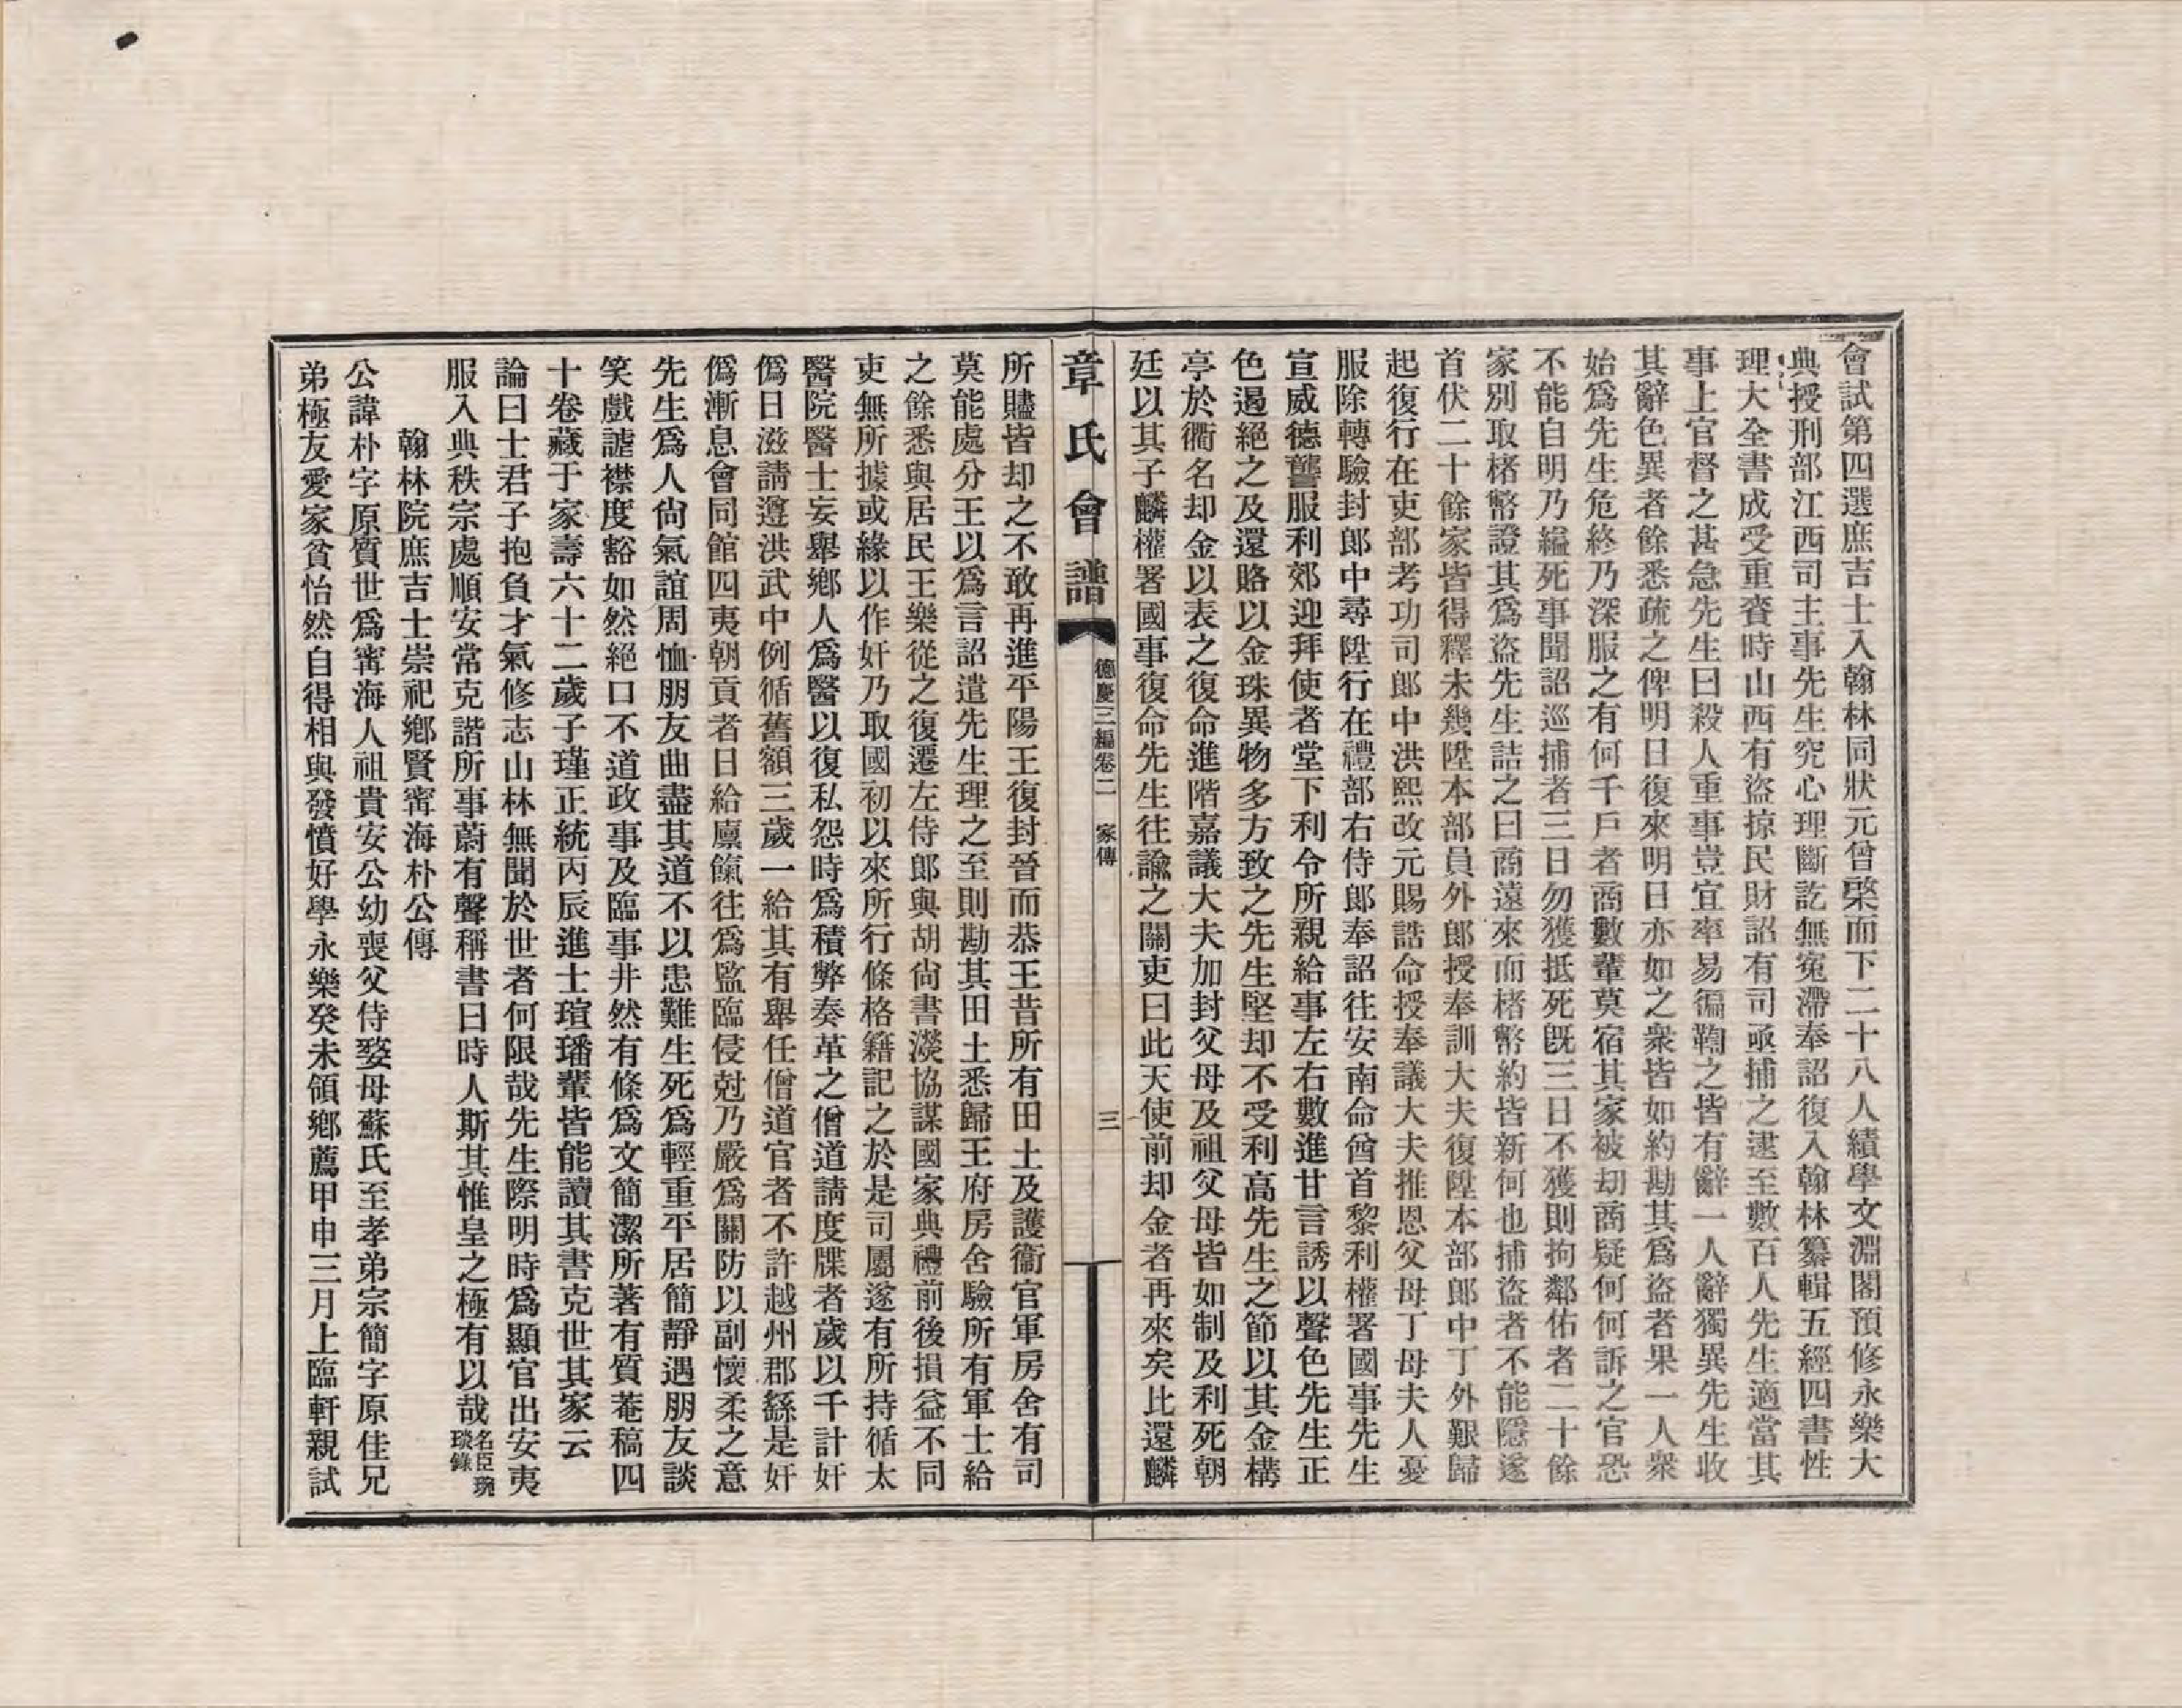 會試第四選庶吉士入翰林同狀元曾棨而下二十八人績學文淵閣預修永樂大
典授刑部江西司主事先生究心理斷訖無寃滯奉詔復入翰林纂輯五經四書性
理大全書成受重賚時山西有盜掠民財詔有司亟捕之逮至數百人先生適當其
事上官督之甚急先生曰殺人重事豈宜率易徧鞫之皆有辭一人辭獨異先生收
其辭色異者餘悉疏之俾明日復來明日亦如之衆皆如約勘其爲盜者果一人衆
始爲先生危終乃深服之有何千戶者商數輩莫宿其家被刧商疑何何訴之官恐
不能自明乃縊死事聞詔巡捕者三日勿獲抵死旣三日不獲則拘鄰佑者二十餘
家別取楮幣證其爲盜先生詰之曰商遠來而楮幣約皆新何也捕盜者不能隱遂
首伏二十餘家皆得釋未幾陞本部員外郎授奉訓大夫復陞本部郎中丁外艱歸
起復行在吏部考功司郎中洪熙改元賜誥命授奉議大夫推恩父母丁母夫人憂
服除轉驗封郎中尋陞行在禮部右侍郎奉詔往安南命酋首黎利權署國事先生
宣威德讋服利郊迎拜使者堂下利令所親給事左右數進甘言誘以聲色先生正
色遏絕之及還賂以金珠異物多方致之先生堅却不受利高先生之節以其金構
亭於衢名却金以表之復命進階嘉議大夫加封父母及祖父母皆如制及利死朝
廷以其子麟權署國事復命先生往諭之關吏曰此天使前却金者再來矣比還麟
章氏會譜 德慶三編卷二 家傳 三
所贐皆却之不敢再進平陽王復封晉而恭王昔所有田土及護衞官軍房舍有司
莫能處分王以爲言詔遣先生理之至則勘其田土悉歸王府房舍驗所有軍士給
之餘悉與居民王樂從之復遷左侍郎與胡尙書濙協謀國家典禮前後損益不同
吏無所據或緣以作奸乃取國初以來所行條格籍記之於是司屬遂有所持循太
醫院醫士妄舉鄉人爲醫以復私怨時爲積弊奏革之僧道請度牒者歲以千計奸
僞日滋請遵洪武中例循舊額三歲一給其有舉任僧道官者不許越州郡繇是奸
僞漸息會同館四夷朝貢者日給廩餼往爲監臨侵尅乃嚴爲關防以副懷柔之意
先生爲人尙氣誼周恤朋友曲盡其道不以患難生死爲輕重平居簡靜遇朋友談
笑戲謔襟度豁如然絕口不道政事及臨事井然有條爲文簡潔所著有質菴稿四
十卷藏于家壽六十二歲子瑾正統丙辰進士瑄璠輩皆能讀其書克世其家云
論曰士君子抱負才氣修志山林無聞於世者何限哉先生際明時爲顯官出安夷
服入典秩宗處順安常克諧所事蔚有聲稱書曰時人斯其惟皇之極有以哉名臣琬琰錄
翰林院庶吉士崇祀鄉賢寗海朴公傳
公諱朴字原質世爲寗海人祖貴安公幼喪父侍婺母蘇氏至孝弟宗簡字原佳兄
弟極友愛家貧怡然自得相與發憤好學永樂癸未領鄉薦甲申三月上臨軒親試